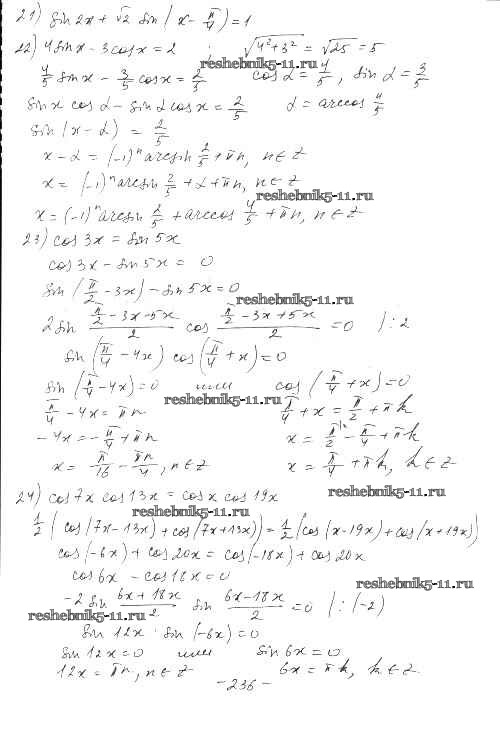 21) sin 2x + √2 sin (x - π/4) = 1
22) 4 sin x - 3 cos x = 2 ; √(4² + 3²) = √25 = 5
reshebnik5-11.ru
4/5 sin x - 3/5 cos x = 2/5 cos α = 4/5, sin α = 3/5
sin x cos α - sin α cos x = 2/5 α = arccos 4/5
sin (x - α) = 2/5
x - α = (-1)ⁿ arcsin 2/5 + πn, n ∈ Z
x = (-1)ⁿ arcsin 2/5 + α + πn, n ∈ Z
reshebnik5-11.ru
x = (-1)ⁿ arcsin 2/5 + arccos 4/5 + πn, n ∈ Z
23) cos 3x = sin 5x
cos 3x - sin 5x = 0
sin (π/2 - 3x) - sin 5x = 0
reshebnik5-11.ru
2 sin (π/2 - 3x - 5x)/2 cos (π/2 - 3x + 5x)/2 = 0 |: 2
sin (π/4 - 4x) cos (π/4 + x) = 0
sin (π/4 - 4x) = 0 или cos (π/4 + x) = 0
reshebnik5-11.ru
π/4 - 4x = πn π/4 + x = π/2 + πk
- 4x = - π/4 + πn x = π/2 - π/4 + πk
x = π/16 - πn/4, n ∈ Z x = π/4 + πk, k ∈ Z
reshebnik5-11.ru
24) cos 7x cos 13x = cos x cos 19x
1/2 (cos (7x - 13x) + cos (7x + 13x)) = 1/2 (cos (x - 19x) + cos (x + 19x))
cos (-6x) + cos 20x = cos (-18x) + cos 20x
cos 6x - cos 18x = 0
reshebnik5-11.ru
-2 sin (6x + 18x)/2 sin (6x - 18x)/2 = 0 |: (-2)
reshebnik5-11.ru
sin 12x sin (-6x) = 0
sin 12x = 0 или sin 6x = 0
12x = πn, n ∈ Z 6x = πk, k ∈ Z
- 236 -